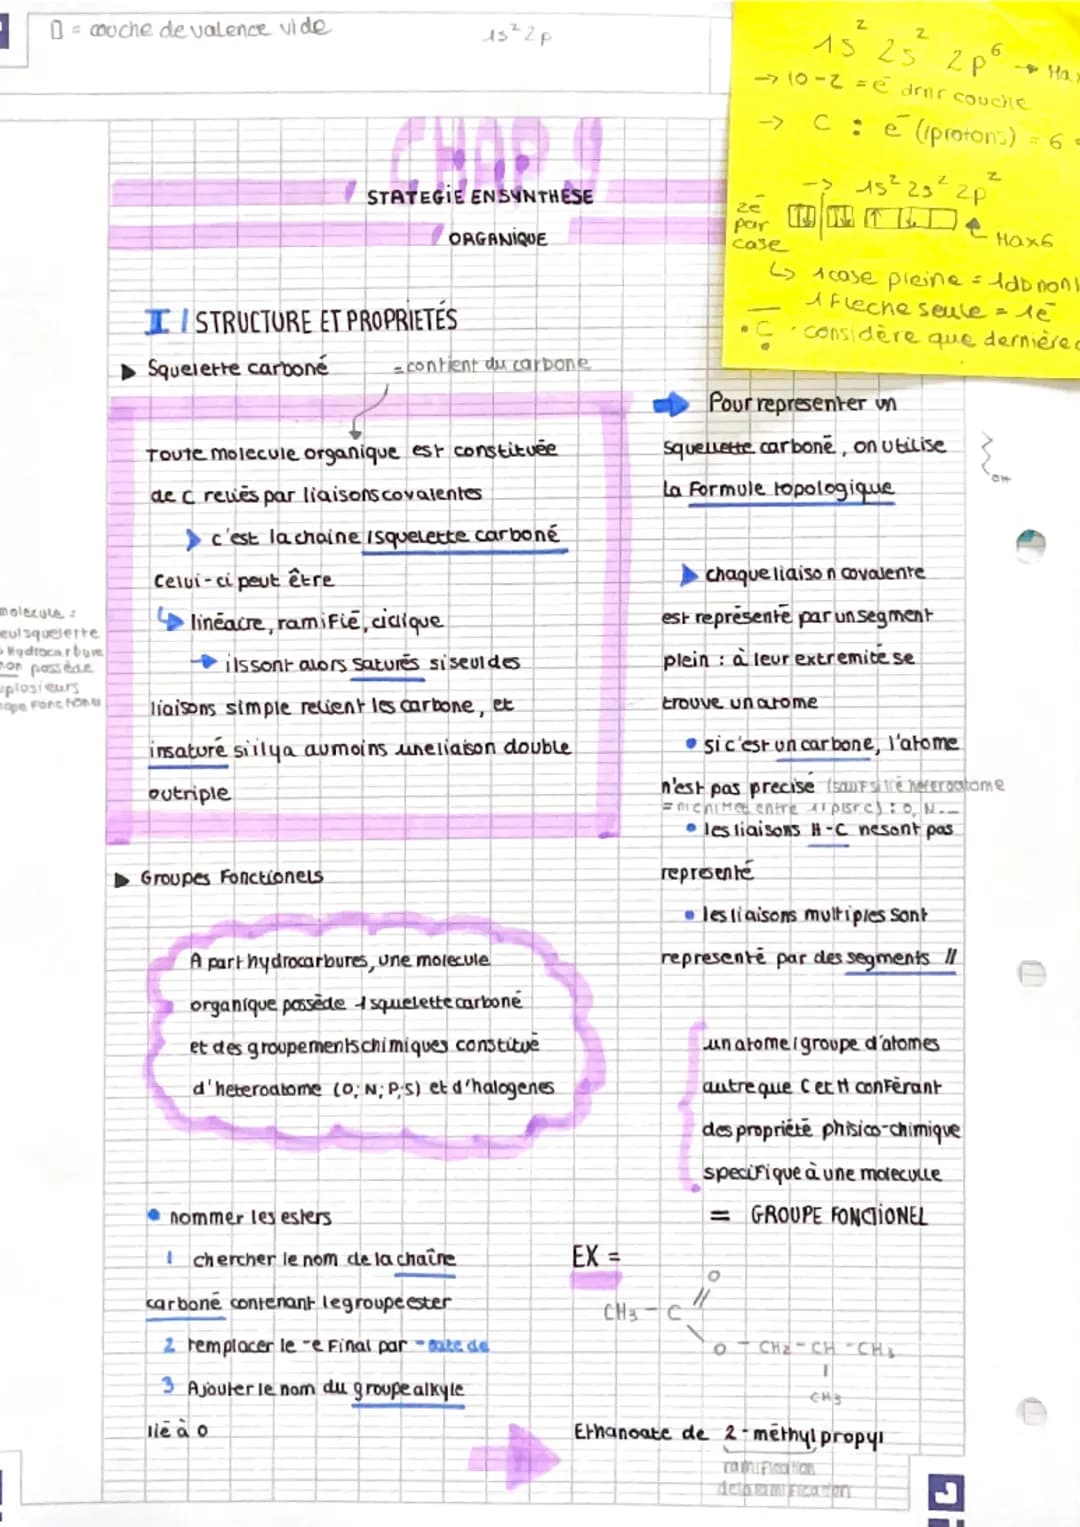 ▯ = couche de valence vide
1s² 2p
1s² 2s² 2p⁶ → Max
→ 10-2 = e⁻ drnr couche
→ C : e⁻ (/protons) = 6 =
→ 1s² 2s² 2p²
2e⁻ par case
Max 6
↳ 1 case pleine = 1 db non l
1 Fleche seule = 1e⁻
• C • considère que dernière c
CHAP 9
STATEGIE EN SYNTHESE
ORGANIQUE
I / STRUCTURE ET PROPRIETÉS
▶ Squelette carboné
= contient du carbone
Toute molecule organique est constituée
de C reliés par liaisons covalentes
➤ c'est la chaine / squelette carboné
Celui-ci peut être
↳ linéaire, ramifié, ciclique
→ ils sont alors saturés si seul des
liaisons simple relient les carbone, et
insaturé si il y a au moins une liaison double
ou triple
molecule :
eul squelette
Hydrocarbure
non possède
plusieurs
▶ Groupes Fonctionels
A part hydrocarbures, une molecule
organique possède 1 squelette carboné
et des groupements chimiques constitué
d'heteroatome (O; N; P; S) et d'halogenes
• nommer les esters
1 chercher le nom de la chaîne
carboné contenant le groupe ester
2 remplacer le -e Final par -oate de
3 Ajouter le nom du groupe alkyle
lié à O
➡ Pour representer un
squellette carboné, on utilise
la Formule topologique
OH
➤ chaque liaison covalente
est représenté par un segment
plein : à leur extremité se
trouve un atome
• si c'est un carbone, l'atome
n'est pas precisé (sauf si heteroatome
= ni C ni H et entre 1 plsr C) : O, N...
• les liaisons H-C ne sont pas
representé
• les liaisons multiples sont
representé par des segments //
un atome / groupe d'atomes
autre que C et H conférant
des propriété phisico-chimique
specifique à une moleculle
= GROUPE FONCTIONEL
EX =
O
//
CH3 - C
\
O - CH2 - CH - CH3
|
CH3
Ethanoate de 2-méthyl propyl
ramification
de la ramification